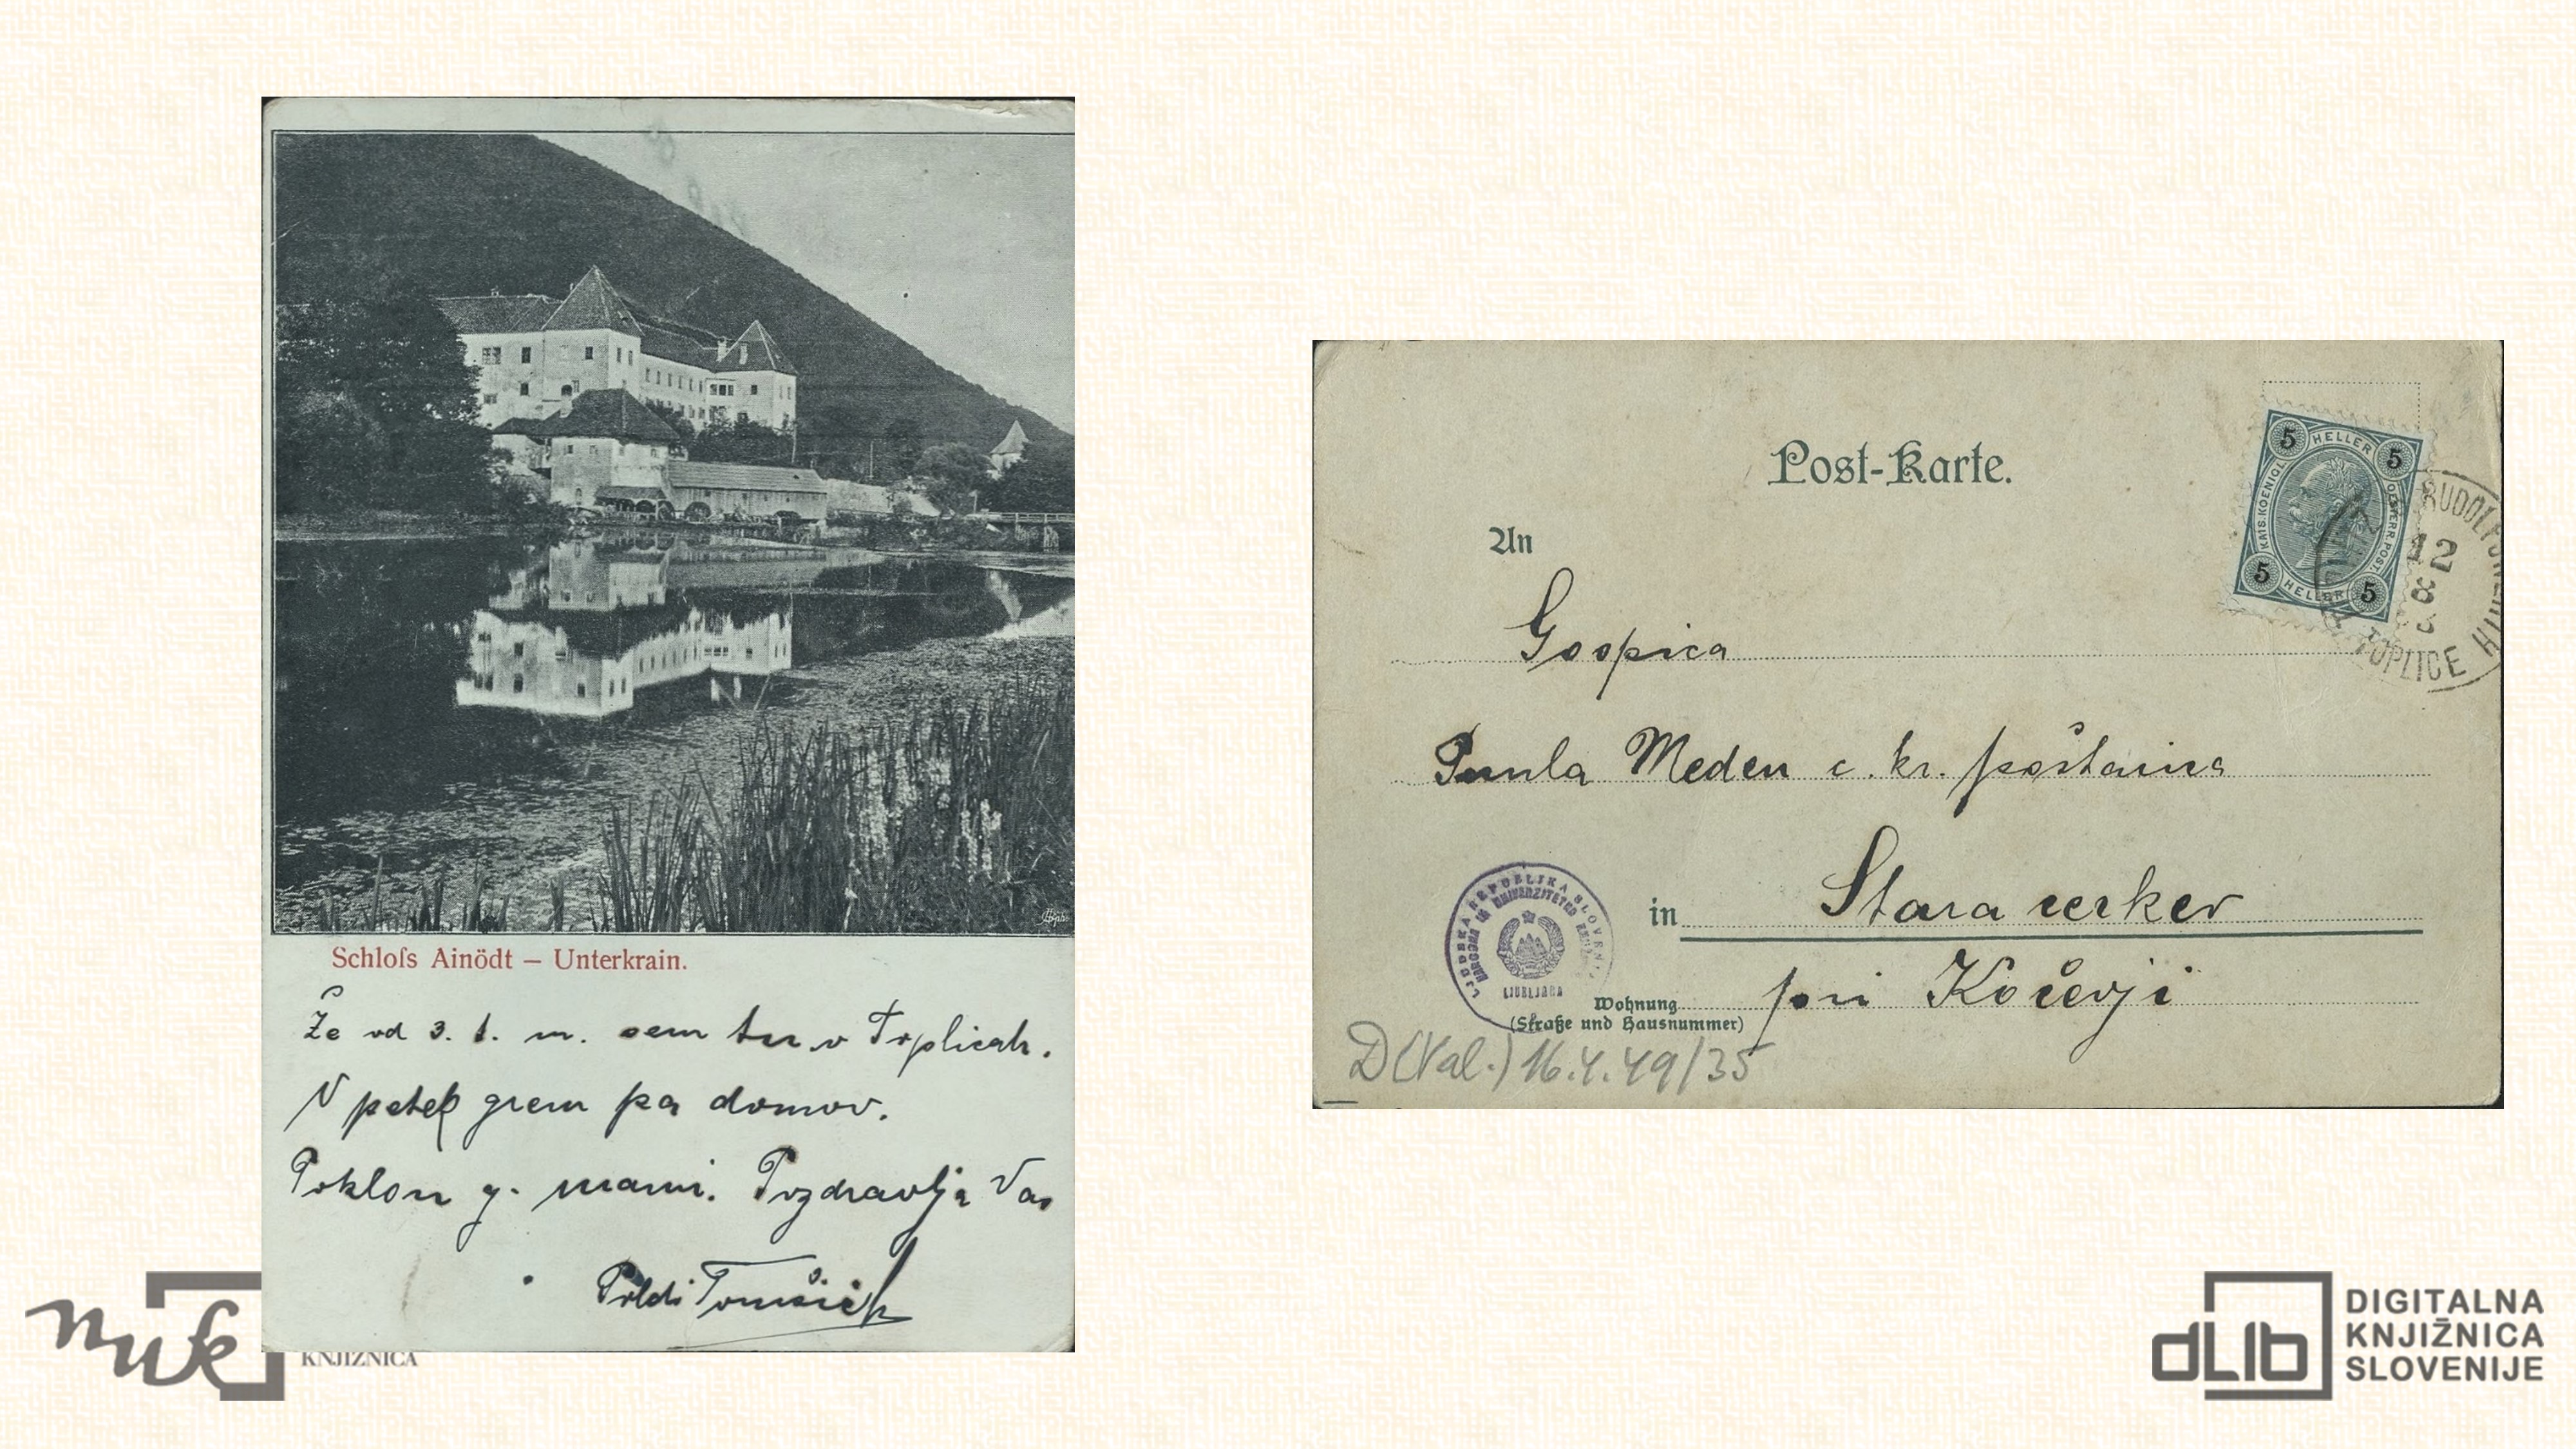 Schloſs Ainödt – Unterkrain.
Že od 3. t. m. sem tu v Toplicah.
V petek grem pa domov.
Poklon g. mami. Pozdravlja Vas
Poldi Tomšich
KNJIŽNICA
nuk
Post-Karte.
An
Gospica
Meden c. kr. poštarica
in Stara cerkev
Wohnung pri Kočevji
(Straße und Hausnummer)
D (Val.) 16.4.49/35
LJUDSKA REPUBLIKA SLOVENIJA
NARODNA IN UNIVERZITETNA
LJUBLJANA
5 HELLER 5
KAIS. KOENIGL. OESTERR. POST.
5 HELLER 5
RUDOLFSWERTH
12
8
TOPLICE
dLib
DIGITALNA
KNJIŽNICA
SLOVENIJE